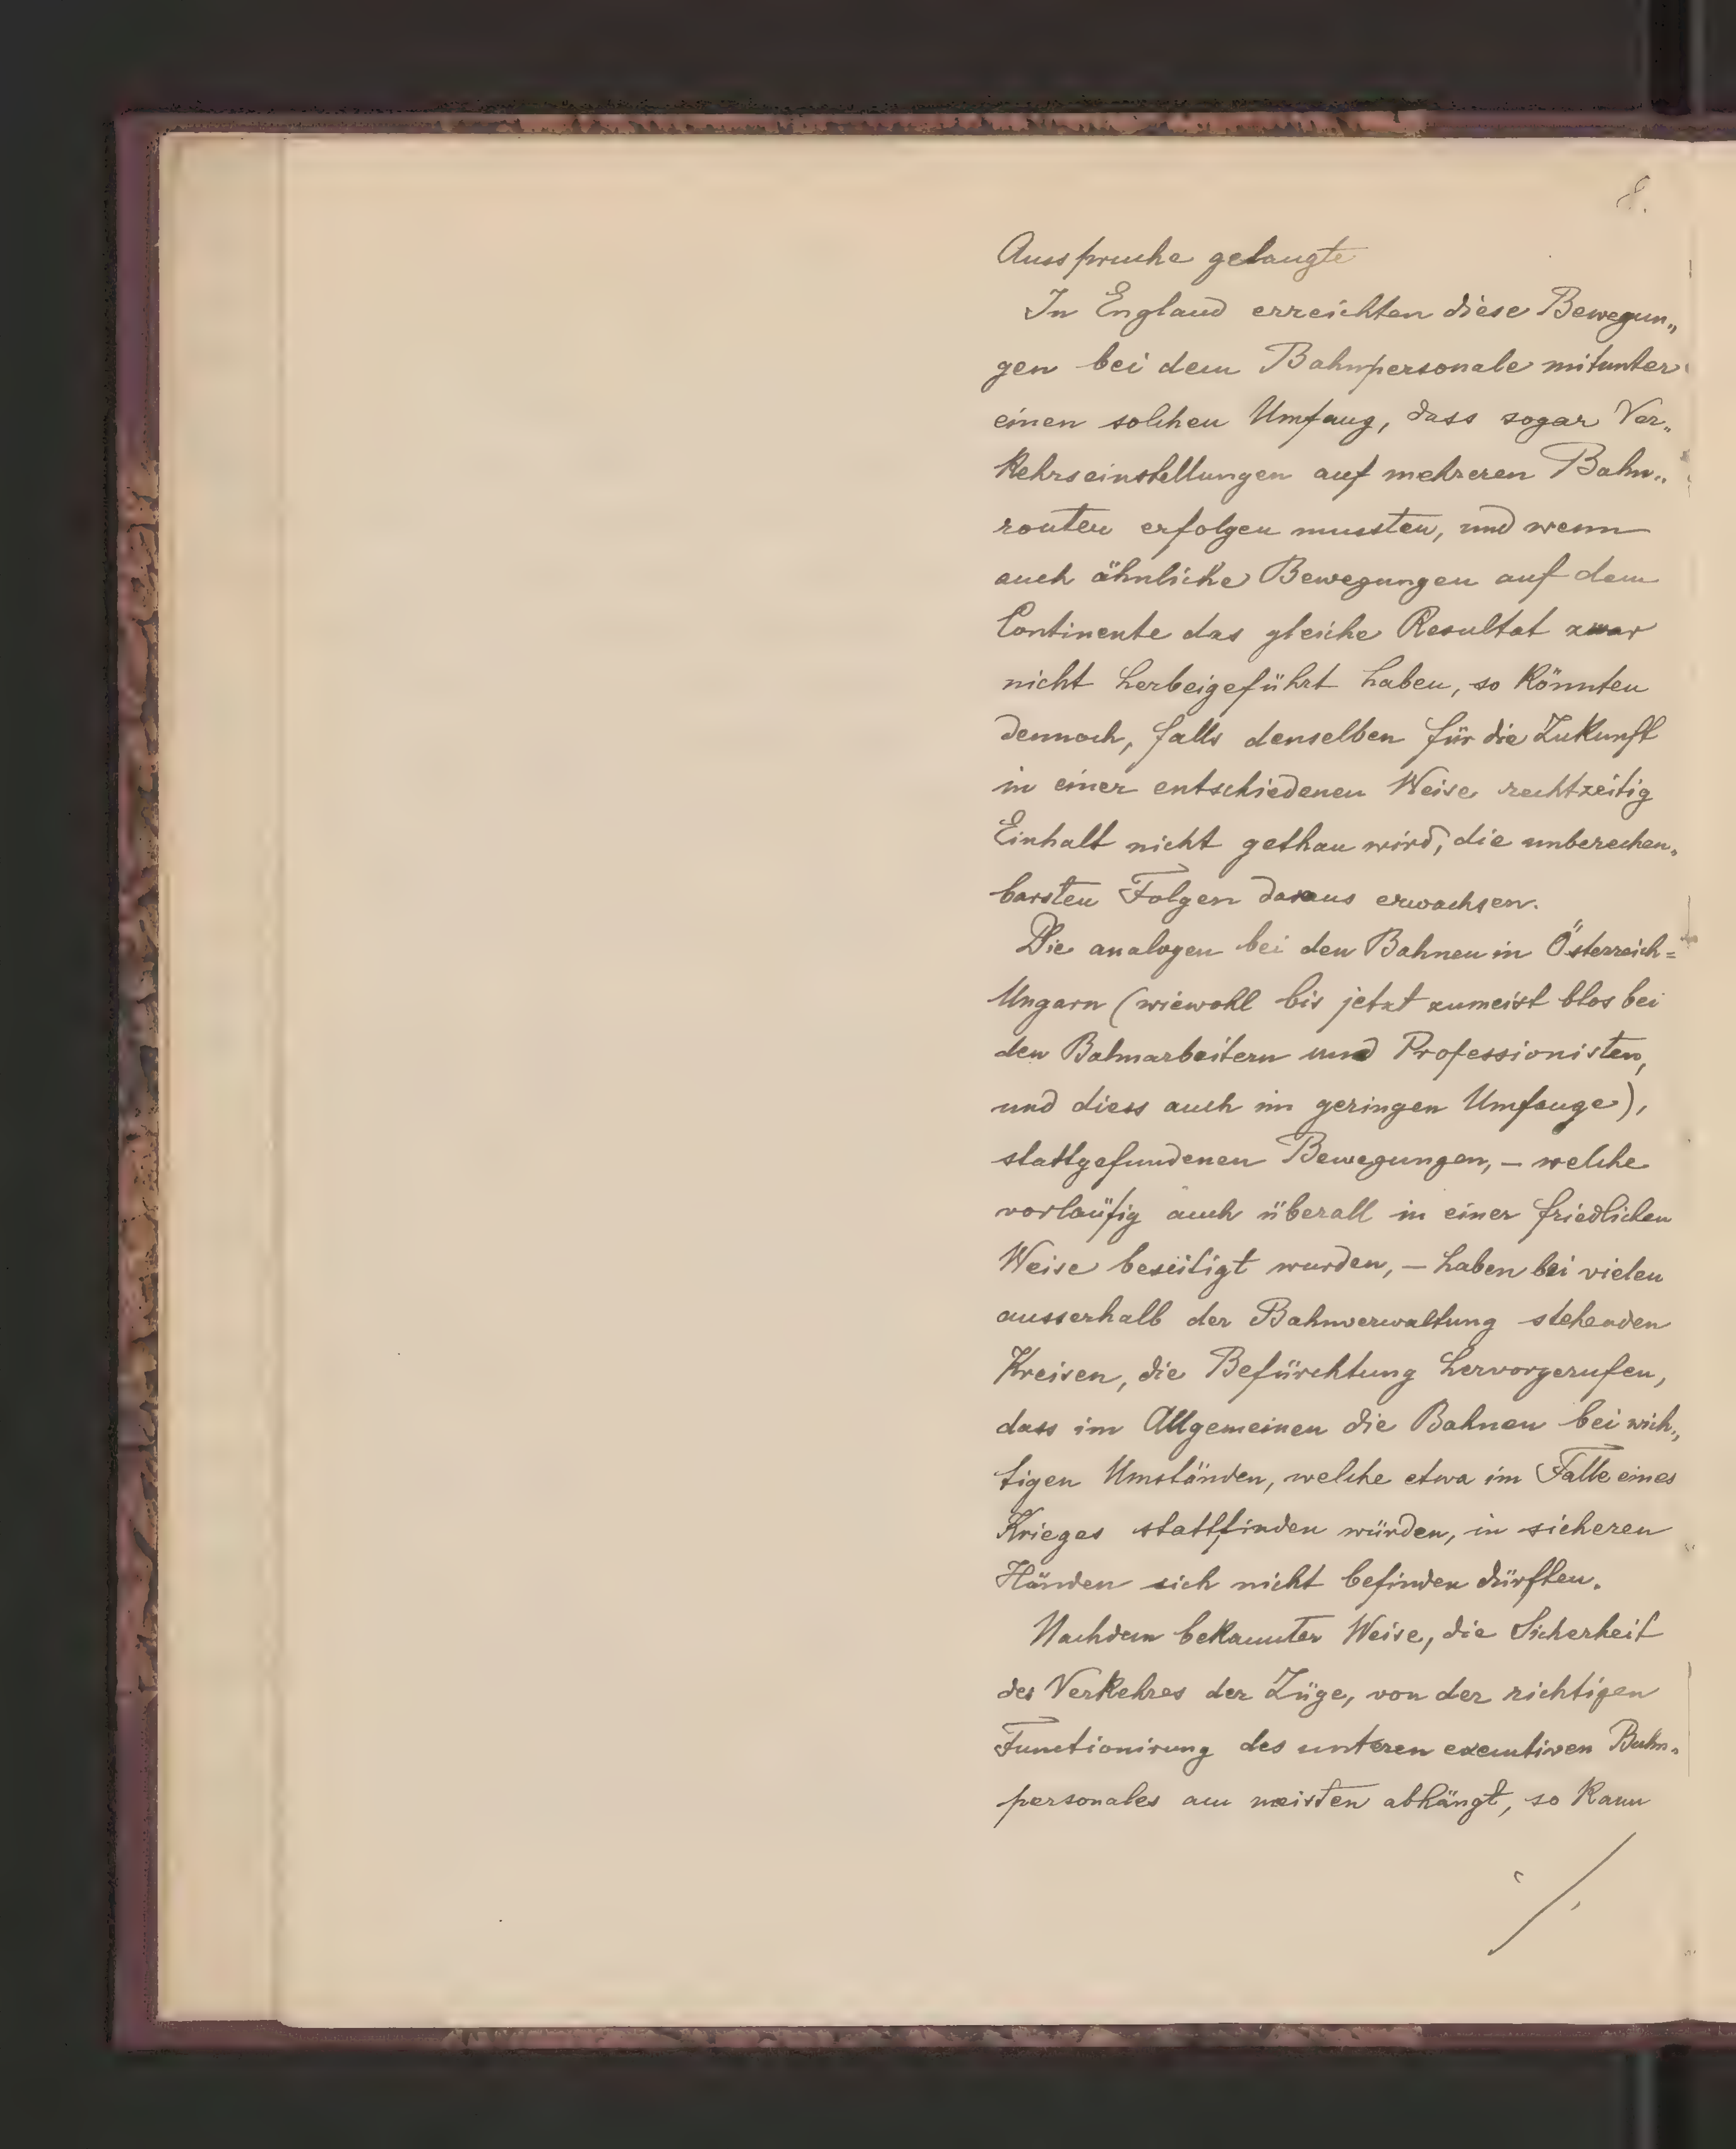 8.
Ausspruche gelangte
In England erreichten diese Bewegun„
gen bei dem Bahnpersonale mitunter
einen solchen Umfang, dass sogar Ver„
kehrseinstellungen auf mehreren Bahn„
routen erfolgen mussten, und wenn
auch ähnliche Bewegungen auf dem
Continente das gleiche Resultat zwar
nicht herbeigeführt haben, so könnten
dennoch, falls denselben für die Zukunft
in einer entschiedenen Weise rechtzeitig
Einhalt nicht gethan wird, die unberechen„
barsten Folgen daraus erwachsen.
Die analogen bei den Bahnen in Österreich=
Ungarn (wiewohl bis jetzt zumeist blos bei
den Bahnarbeitern und Professionisten,
und diess auch im geringen Umfange),
stattgefundenen Bewegungen, – welche
vorläufig auch überall in einer friedlichen
Weise beseitigt wurden, – haben bei vielen
ausserhalb der Bahnverwaltung stehenden
Kreisen, die Befürchtung hervorgerufen,
dass im Allgemeinen die Bahnen bei wich„
tigen Umständen, welche etwa im Falle eines
Krieges stattfinden würden, in sicheren
Händen sich nicht befinden dürften.
Nachdem bekannter Weise, die Sicherheit
des Verkehres der Züge, von der richtigen
Functionirung des unteren executiven Bahn„
personales am meisten abhängt, so kann
./.